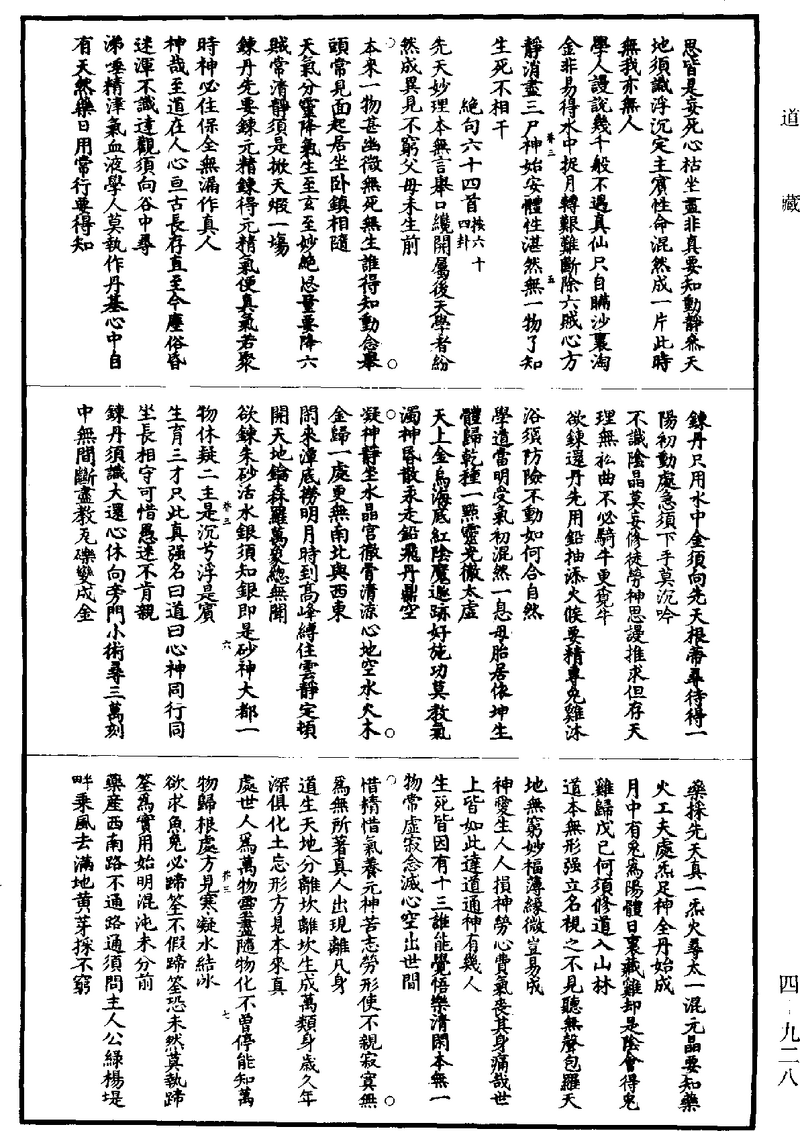 道藏
思皆是妄死心枯坐盡非真要知動靜叅天
地須識浮沉定主賓性命混然成一片此時
無我亦無人
學人謾說幾千般不遇真仙只自瞞沙裏淘
金非易得水中捉月轉艱難斷除六賊心方
卷三
五
靜消盡三尸神始安體性湛然無一物了知
生死不相干
絕句六十四首按六十四卦
先天妙理本無言舉口纔開屬後天學者紛
然成異見不窮父母未生前
本來一物甚幽微無死無生誰得知動念舉
頭常見面起居坐卧鎮相隨
天氣分靈降氣生至玄至妙絕思量要降六
賊常清靜須是掀天煆一塲
鍊丹先要鍊元精鍊得元精氣便真氣若聚
時神必住保全無漏作真人
神哉至道在人心亘古長存直至今塵俗昏
迷渾不識達觀須向谷中尋
涕唾精津氣血液學人莫執作丹基心中自
有天然藥日用常行要得知
鍊丹只用水中金須向先天根蒂尋待得一
陽初動處急須下手莫沉吟
不識陰晶莫妄修徒勞神思謾推求但存天
理無私曲不必騎牛更覓牛
欲鍊還丹先用鉛抽添火候要精專兔雞沐
浴須防險不動如何合自然
學道當明受氣初混然一息母胎居依坤生
體歸乾種一點靈光徹太虛
天上金烏海底紅陰魔遁跡好施功莫教氣
濁神昏散汞走鉛飛丹鼎空
凝神靜坐水晶宮徹骨清涼心地空水火木
金歸一處更無南北與西東
閑來潭底撈明月時到高峰縛住雲靜定頓
開天地鑰森羅萬象總無聞
欲鍊朱砂活水銀須知銀即是砂神大都一
卷三
六
物休疑二主是沉兮浮是賓
生育三才只此真强名曰道曰心神同行同
坐長相守可惜愚迷不肯親
鍊丹須識大還心休向旁門小術尋三萬刻
中無間斷盡教瓦礫變成金
藥採先天真一炁火尋太一混元晶要知藥
火工夫處炁足神全丹始成
月中有兔爲陽體日裏藏雞却是陰會得兔
雞歸戊己何須修道入山林
道本無形强立名視之不見聽無聲包羅天
地無窮妙福薄緣微豈易成
神愛生人人損神勞心費氣喪其身痛哉世
上皆如此達道通神有幾人
生死皆因有十三誰能覺悟樂清閑本無一
物常虛寂念滅心空出世間
惜精惜氣養元神苦志勞形使不親寂寞無
爲無所著真人出現離凡身
道生天地分離坎離坎生成萬類身歲久年
深俱化土忘形方見本來真
處世人爲萬物靈盡隨物化不曾停能知萬
卷三
七
物歸根處方見寒凝水結冰
欲求魚兔必蹄筌不假蹄筌恐未然莫執蹄
筌爲實用始明混沌未分前
藥産西南路不通路通須問主人公綠楊堤
畔乗風去滿地黄芽採不窮
四-九二八